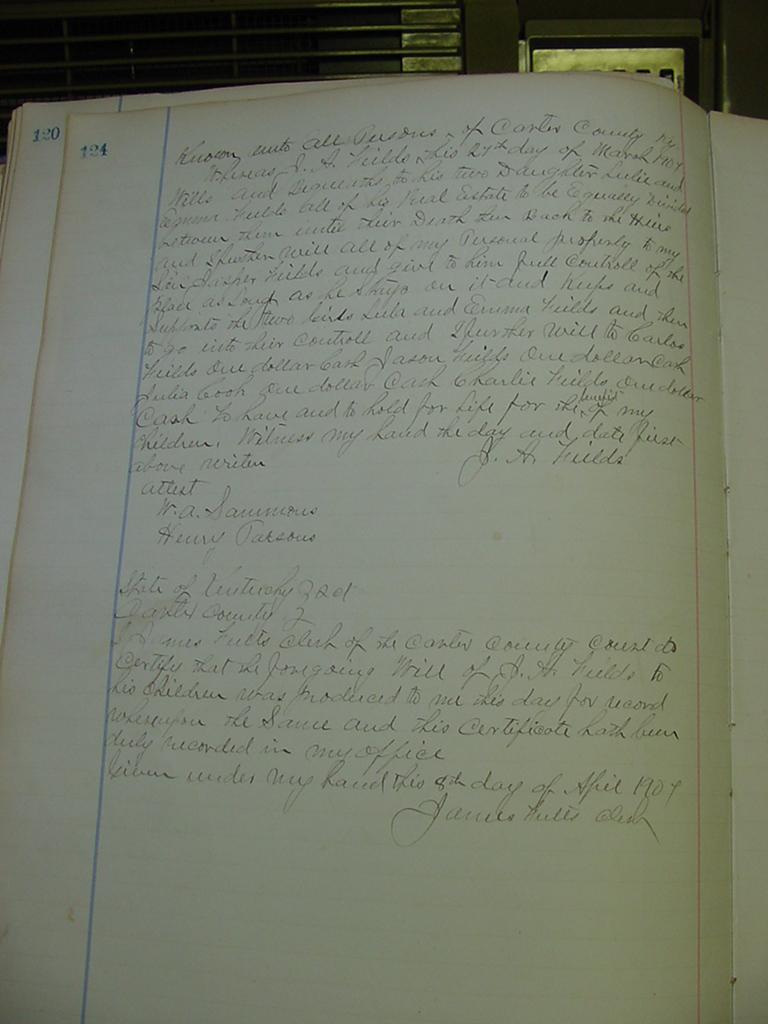 120
124
Known unto All Persons of Carter County Ky
Whereas J. A. Fields this 27th day of March 1907
Wills and Bequeaths to his two Daughter Lulie and
Emma Fields all of his Real Estate to be Equally Divided
between them until their Death then Back to the Heirs
and I further Will all of my Personal property to my
Son Jasper Fields and give to him full Controll of the
Place as Long as he Stays on it and Keeps and
Supports the two Girls Lula and Emma Fields and then
to go into their Controll and I further Will to Carlos
Fields One dollar Cash Jason Fields One dollar Cash
Julia Cook One dollar Cash Charlie Fields One dollar
Cash To have and to hold for Life for the benefit of my
Children. Witness my hand the day and date first
above writen J. A. Fields
attest
W. A. Sammons
Henry Parsons
State of Kentucky
Carter County
I James Fults Clerk of the Carter County Court do
Certify that the foregoing Will of J. A. Fields to
his Children was Produced to me this day for record
whereupon the Same and this Certificate hath been
duly recorded in my office
Given under my hand this 8th day of April 1907
James Fults Clerk